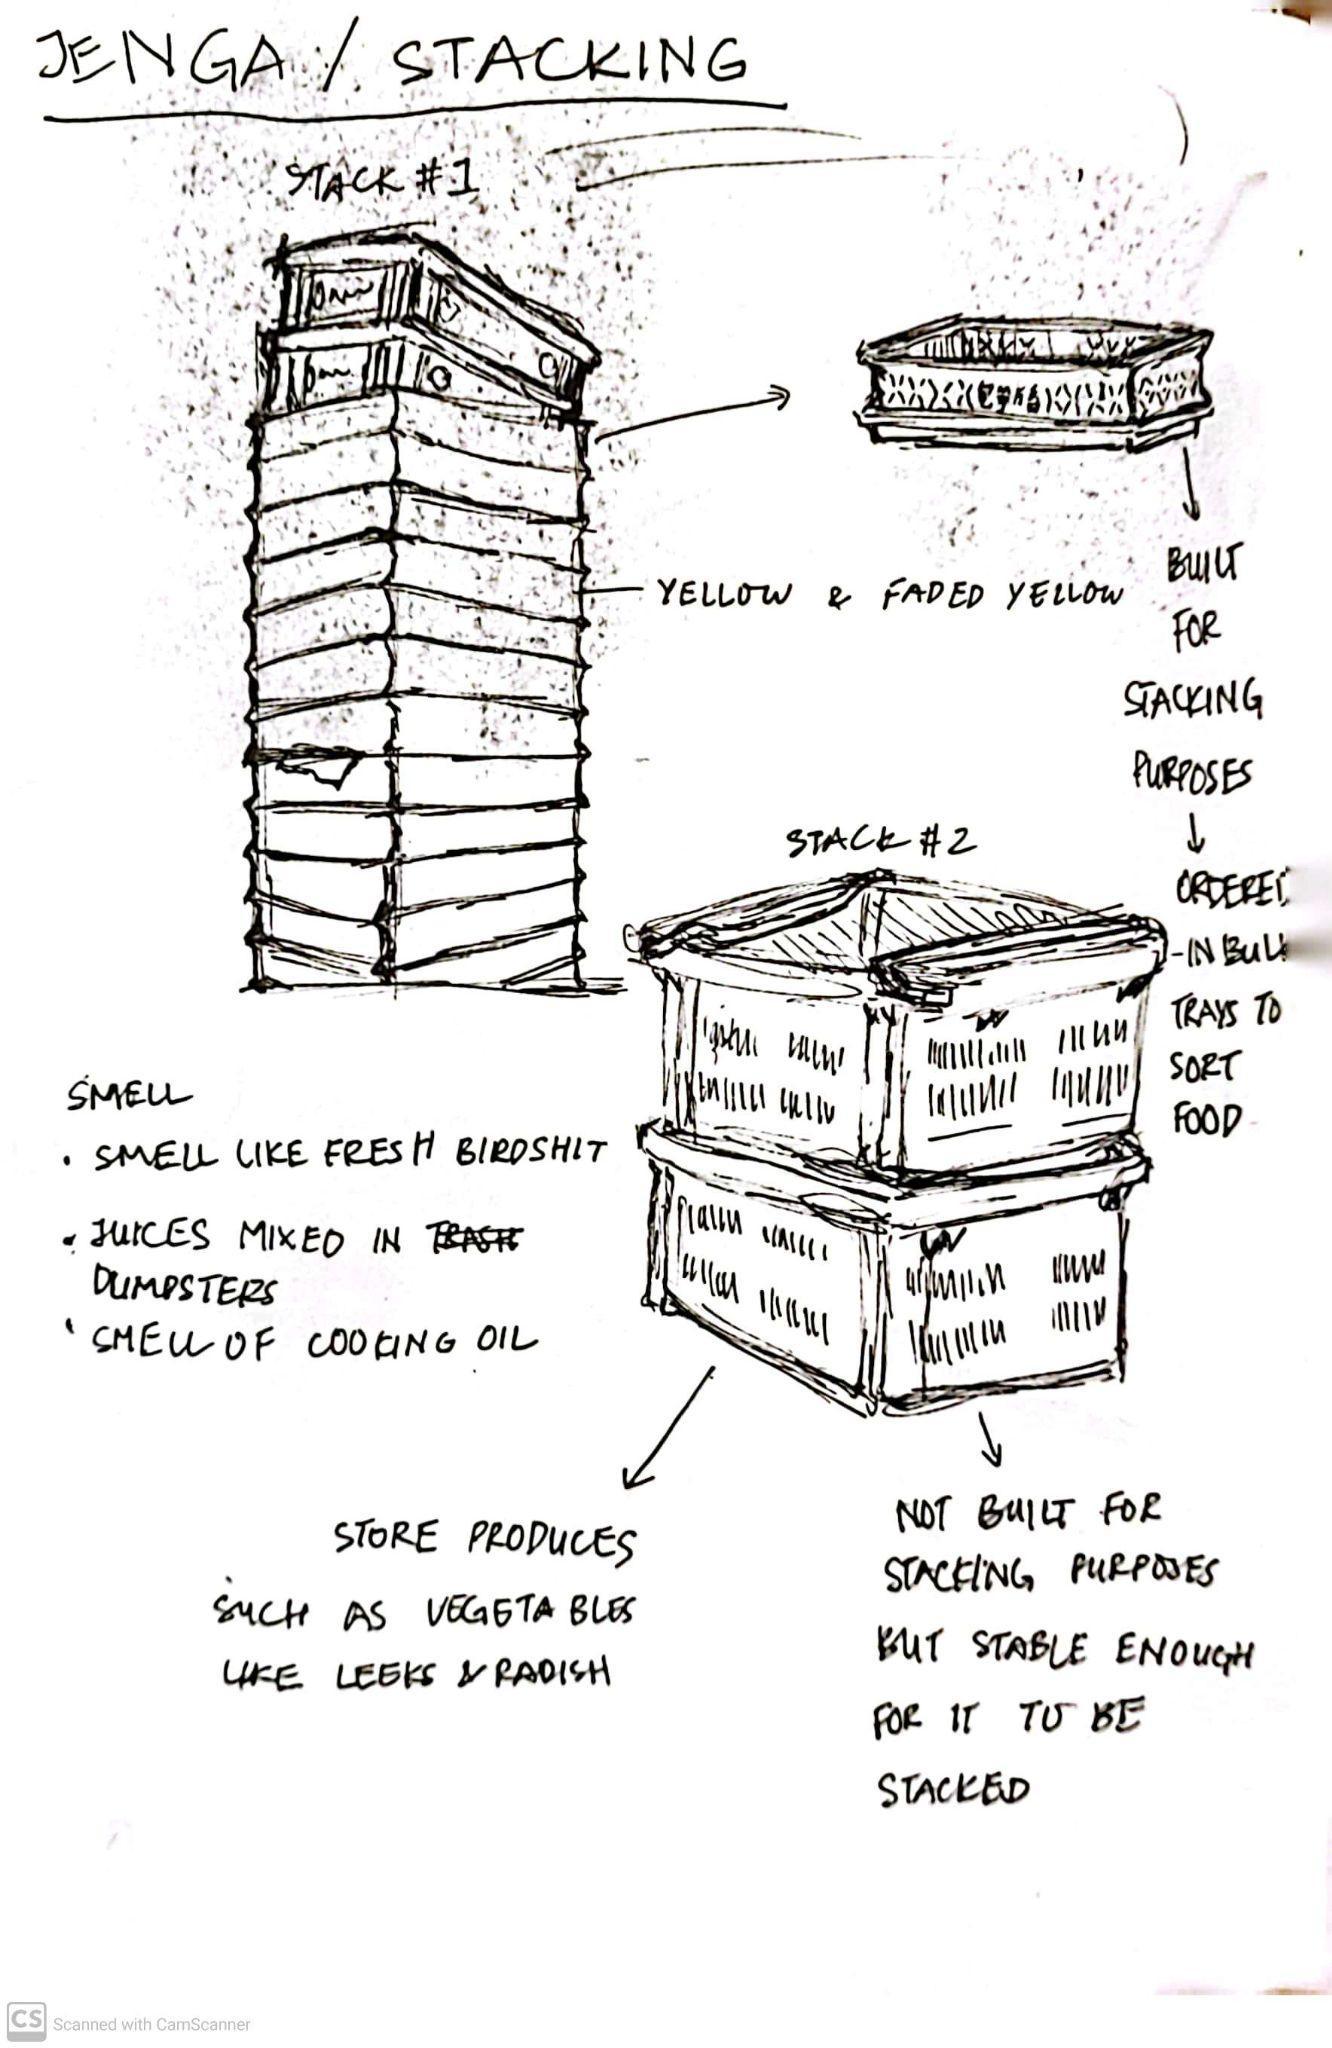 JENGA / STACKING
STACK #1
YELLOW & FADED YELLOW
BUILT
FOR
STACKING
PURPOSES
ORDERED
-IN BULK
TRAYS TO
SORT
FOOD
STACK #2
SMELL
• SMELL LIKE FRESH BIRDSHIT
• JUICES MIXED IN TRASH
DUMPSTERS
• SMELL OF COOKING OIL
STORE PRODUCES
SUCH AS VEGETABLES
LIKE LEEKS & RADISH
NOT BUILT FOR
STACKING PURPOSES
BUT STABLE ENOUGH
FOR IT TO BE
STACKED
CS Scanned with CamScanner